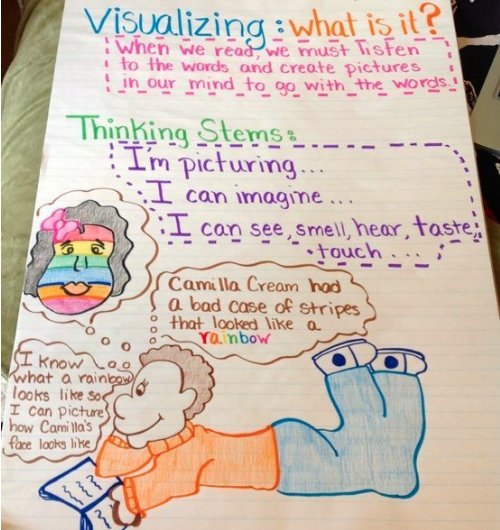 Visualizing: what is it?
When we read, we must listen
to the words and create pictures
in our mind to go with the words.
Thinking Stems:
I'm picturing...
I can imagine...
I can see, smell, hear, taste,
touch...
Camilla Cream had
a bad case of stripes
that looked like a
rainbow
I know
what a rainbow
looks like so
I can picture
how Camilla's
face looks like